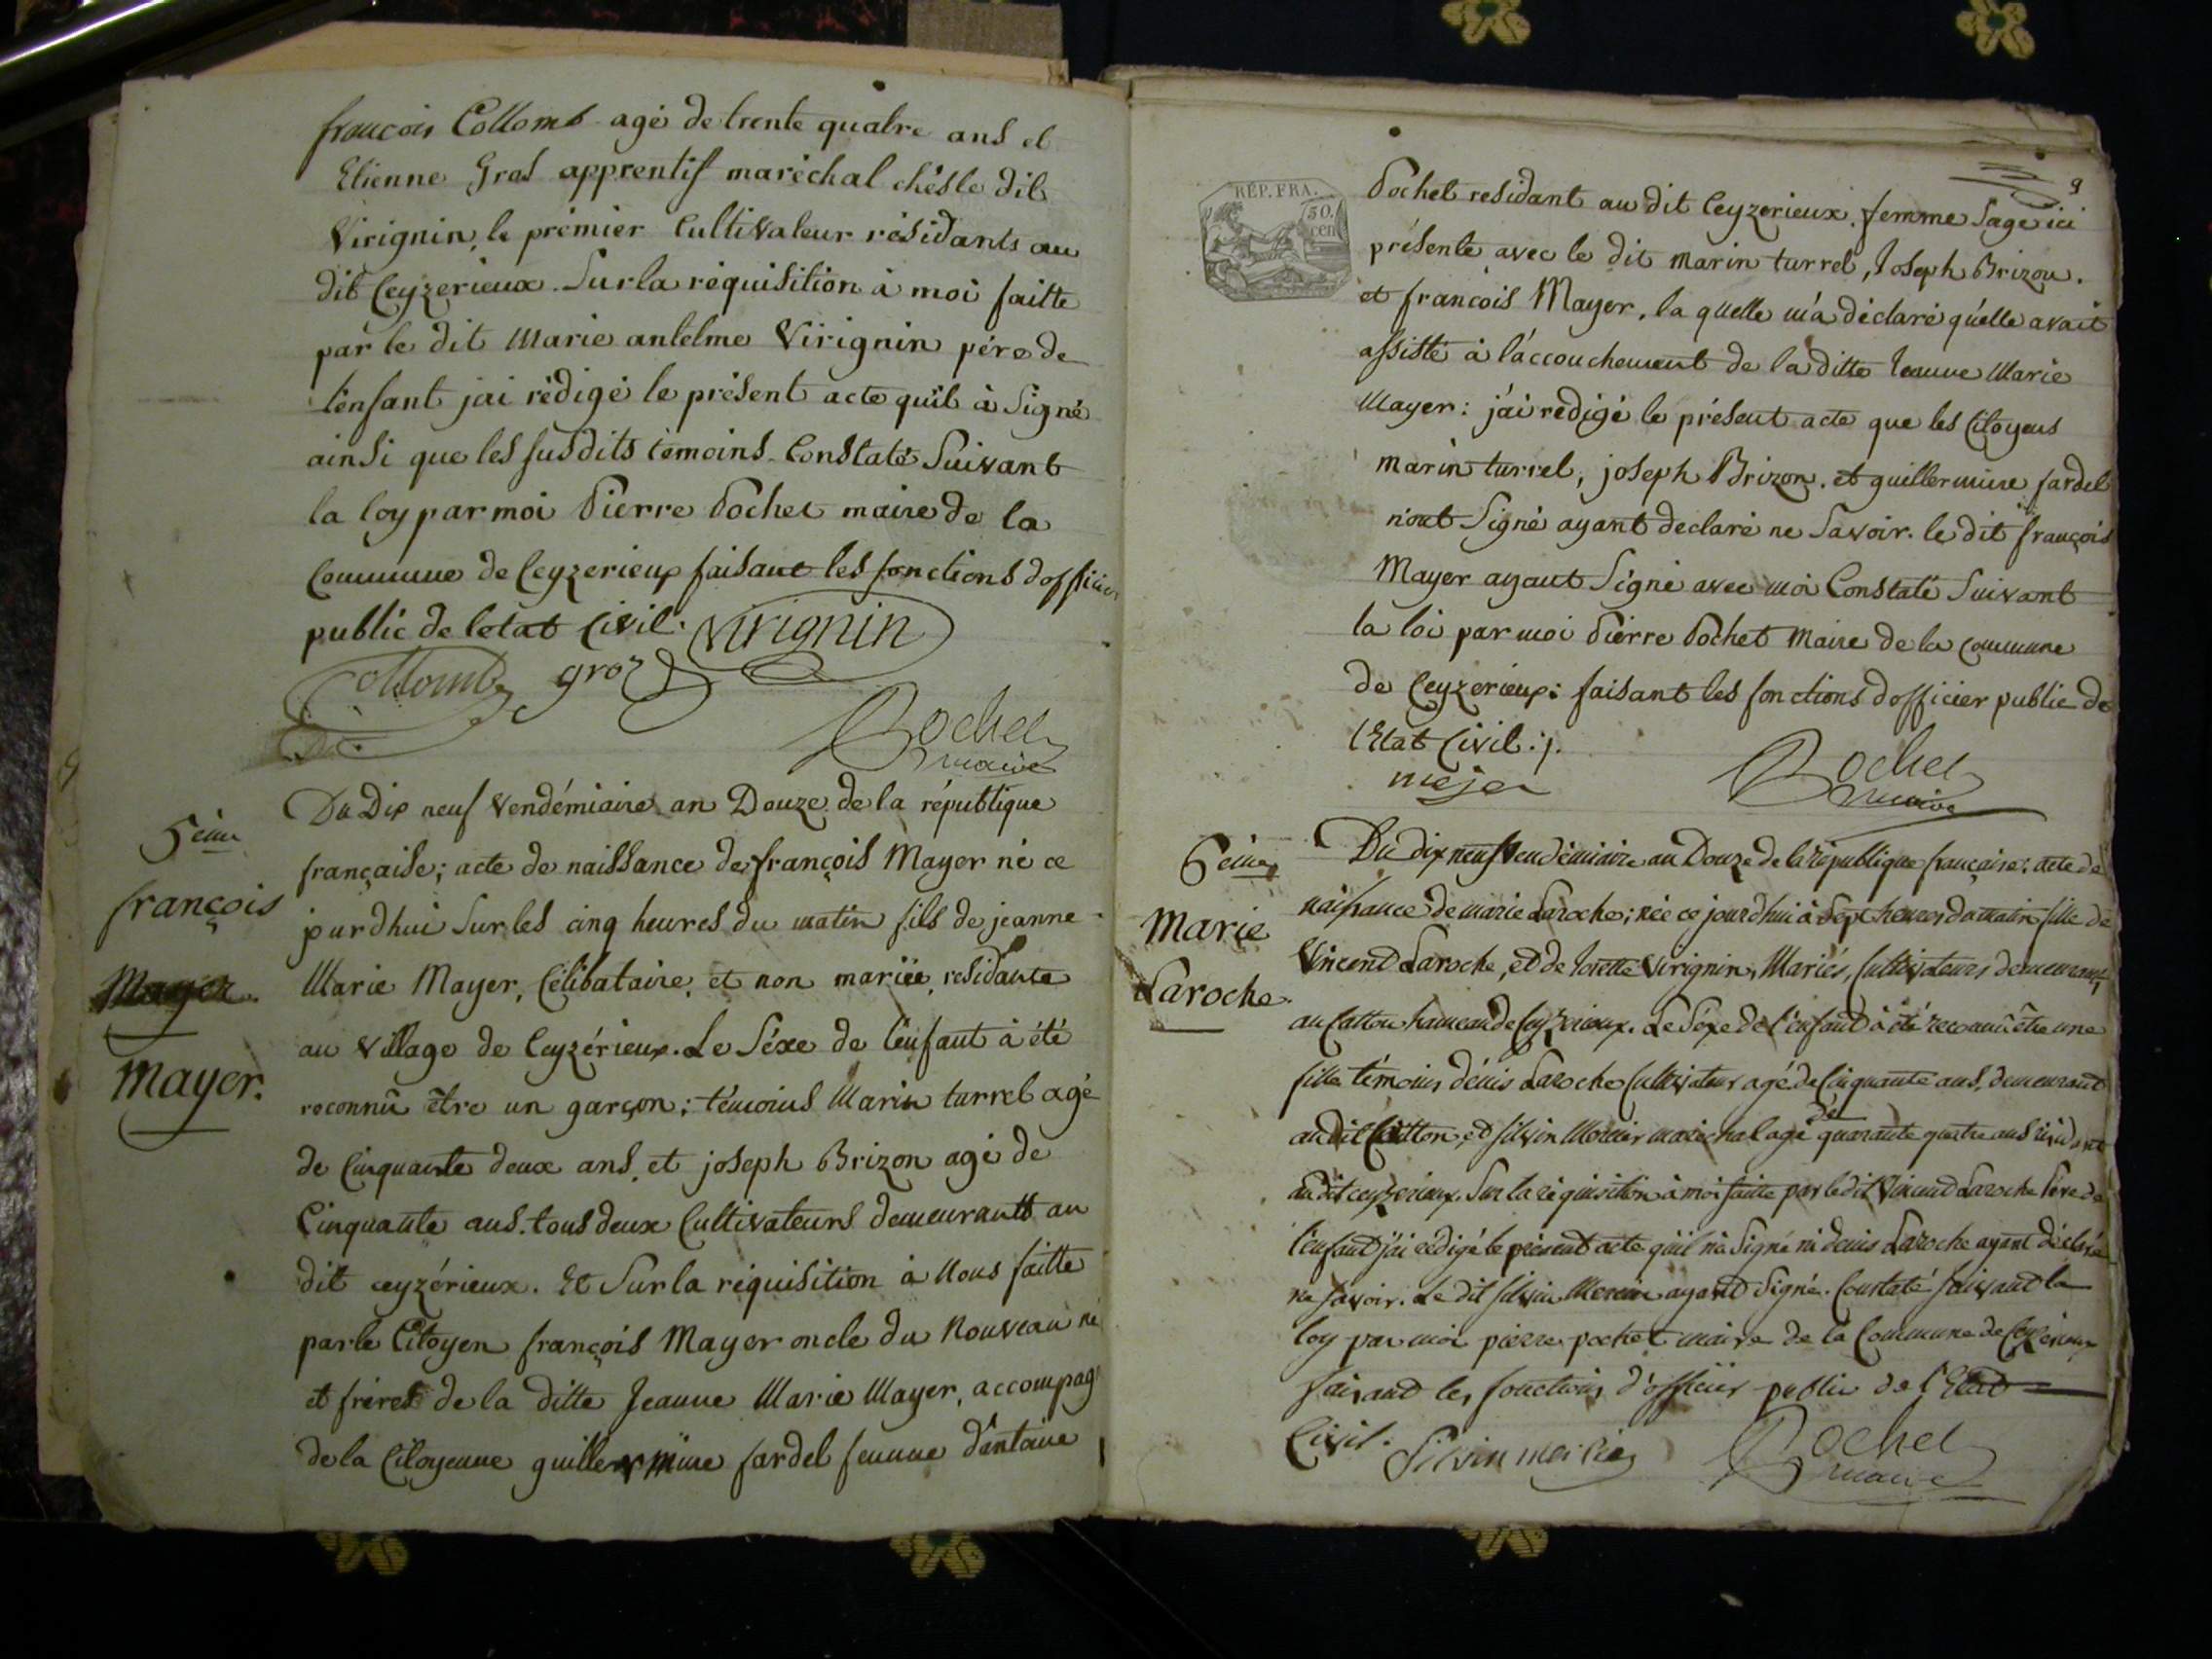 francois Collomb agé de trente quatre ans et
Etienne Gros apprentif maréchal chésle dit
Virignin, le prémier Cultivateur résidants au
dit Ceyzerieux. Sur la réquisition à moi faitte
par le dit Marie antelme Virignin pére de
l'enfant jai rédigé le présent acte quil à Signé
ainsi que les susdits témoins. Constaté Suivant
la loy par moi Pierre Pochet maire de la
Commune de Ceyzerieux faisant les fonctions dofficier
public de letat Civil. Virignin
Collomb groz
Pochet
maire
5eime
françois
Mayer.
Mayer.
Du Dix neuf Vendémiaire an Douze de la république
française; acte de naissance de françois Mayer né ce
jourdhui Sur les cinq heures du matin fils de jeanne
Marie Mayer, Célibataire, et non mariée, residante
au Village de Ceyzérieux. Le Séxe de l'enfant à été
reconnû être un garçon; témoins Marin turrel agé
de Cinquante deux ans, et joseph Brizon agé de
Cinquante ans. tous deux Cultivateurs demeurants au
dit ceyzérieux. Et Sur la réquisition à Nous faitte
par le Citoyen françois Mayer oncle du Nouveau né
et fréres de la ditte Jeanne Marie Mayer, accompag
de la Citoyenne guillermine fardel femme d'antoine
9
REP. FRA.
50.
cen
Pochet residant au dit Ceyzerieux. femme Sage ici
présente avec le dit marin turrel, Joseph Brizon.
et francois Mayer, la quelle m'a déclaré qu'elle avait
assisté à l'accouchement de la ditte Jeanne Marie
Mayer: j'ai redigé le présent acte que les Citoyens
marin turrel, joseph Brizon. et guillermine fardel
n'ont Signé ayant declaré ne Savoir. le dit françois
Mayer ayant Signé avec moi Constaté Suivant
la loi par moi Pierre Pochet Maire de la Commune
de Ceyzerieux: faisant les fonctions dofficier public de
l'Etat Civil:/.
mejer
Pochet
maire
6eime
Marie
Laroche.
Du dix neuf Vendémiaire an Douze de la république française: acte de
naissance de marie Laroche; née ce jourd'hui à Sept heures du matin fille de
Vincend Laroche, et de Josette Virignin, Mariés, Cultivateurs demeurant
au Catton hameau de Ceyzerieux. Le Séxe de l'enfant à été reconnû être une
fille témoins dénis Laroche Cultivateur agé de Cinquante ans, demeurant
au dit Catton, et silvin Mercier maréchal agé de quarante quatre ans résidant
au dit ceyzerieux. Sur la réquisition à moi faitte par le dit Vincend Laroche Pére de
l'enfant j'ai rédigé le présent acte qu'il n'a Signé ni denis Laroche ayant déclaré
ne savoir. Le dit silvin Mercier ayant Signé. Constaté suivant la
loy par moi pierre pochet maire de la Commune de Ceyzerieux
faisant les fonctions d'officier public de l'Etat
Civil.
Silvin
Pochet
maire